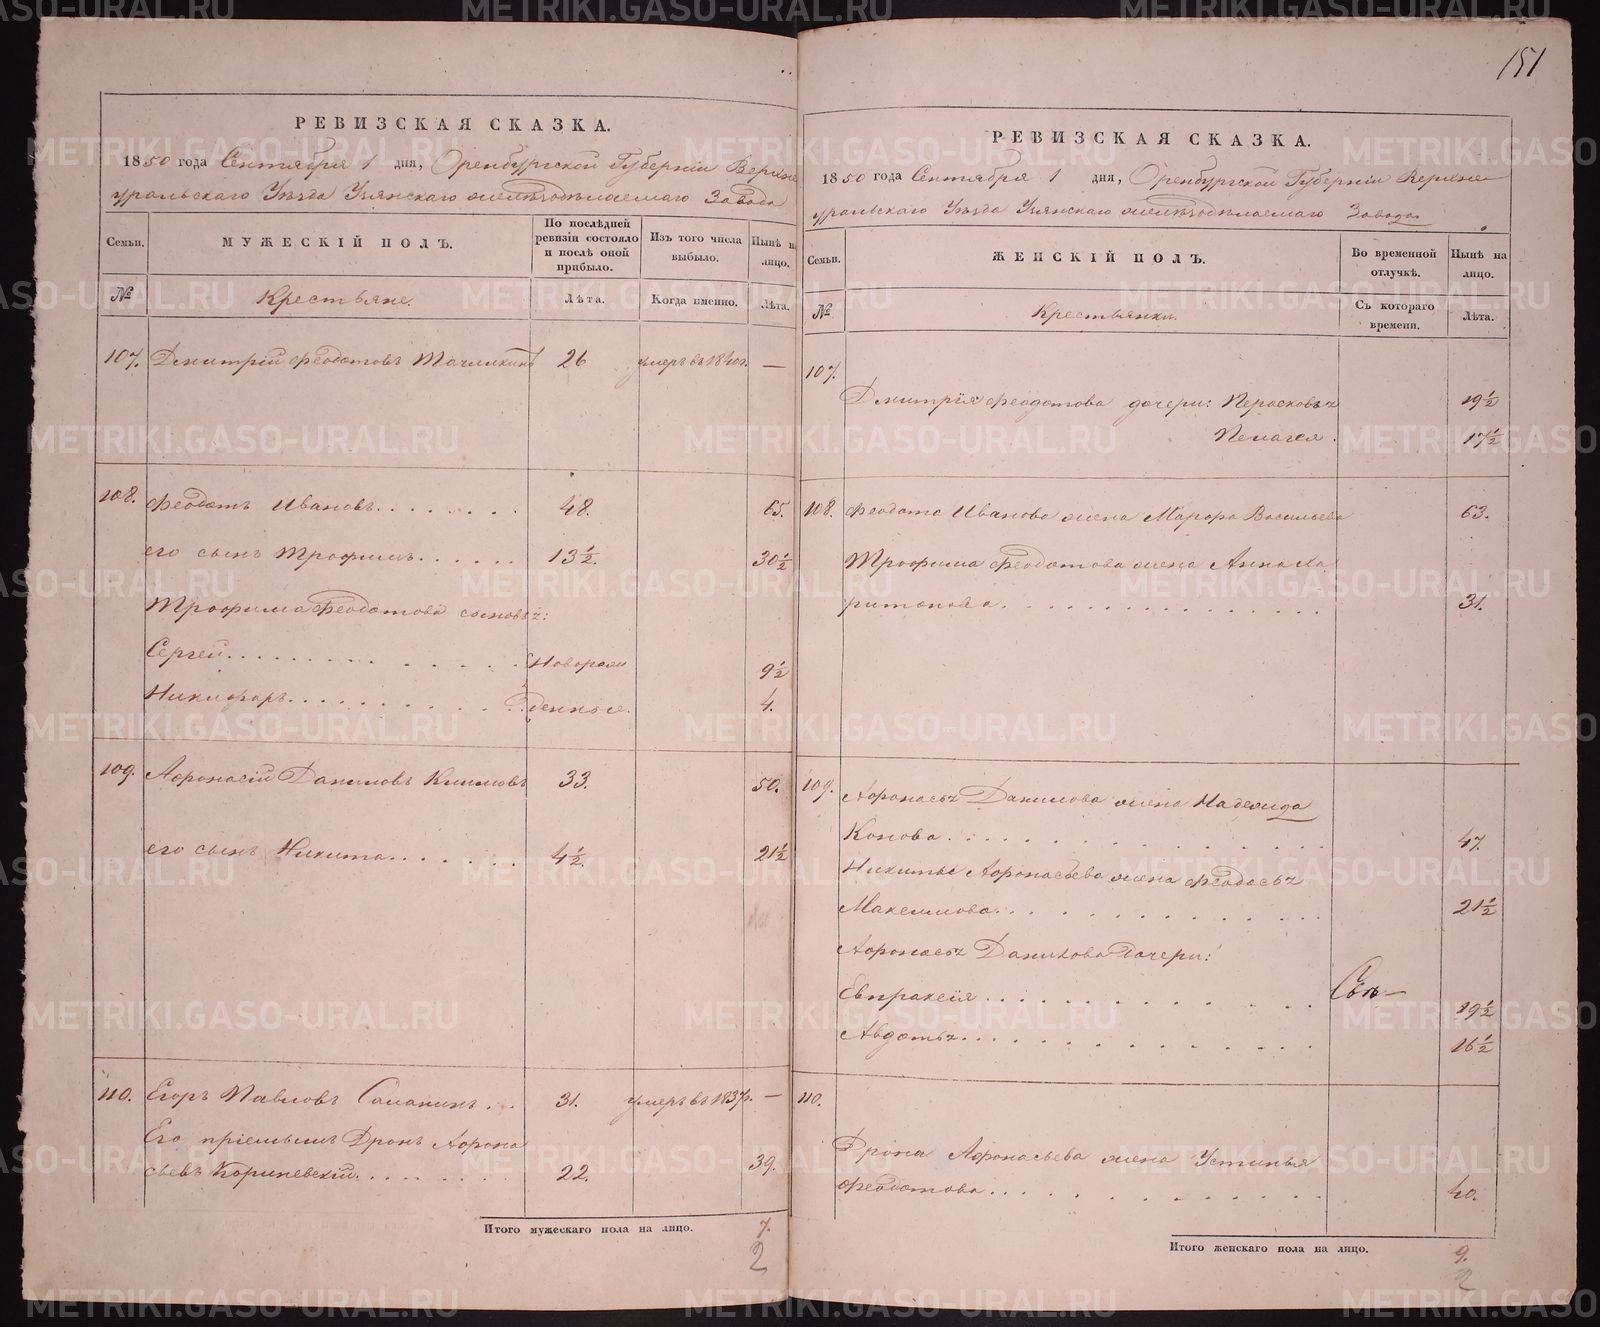 РЕВИЗСКАЯ СКАЗКА.
1850 года Сентября 1 дня, Оренбургской Губерніи Верхне
уральскаго Уѣзда Узянскаго желѣзодѣлаемаго Завода
Семьи.
МУЖЕСКІЙ ПОЛЪ.
По послѣдней ревизіи состояло и послѣ оной прибыло.
Изъ того числа выбыло.
Нынѣ на лицо.
№
Крестьяне.
Лѣта.
Когда именно.
Лѣта.
107. Дмитрій Феодотовъ 26 умеръ въ 1840г. —
108. Феодотъ Ивановъ 48. 65.
его сынъ Трофимъ 13 1/2. 30 1/2
Трофима Феодотова сыновья:
Сергей Новорож 9 1/2
Никифоръ денные. 4.
109. Афонасій Даниловъ Климовъ 33. 50.
его сынъ Никита 4 1/2. 21 1/2
110. Егоръ Павловъ Саланинъ 31. умеръ въ 1837г. —
Его пріемышъ Дронъ Афона
сьевъ Кориневскій 22. 39.
Итого мужескаго пола на лицо. 7.
2
151
РЕВИЗСКАЯ СКАЗКА.
1850 года Сентября 1 дня, Оренбургской Губерніи Верхне
уральскаго Уѣзда Узянскаго желѣзодѣлаемаго Завода
Семьи.
ЖЕНСКІЙ ПОЛЪ.
Во временной отлучкѣ.
Нынѣ на лицо.
№
Крестьянки.
Съ котораго времени.
Лѣта.
107.
Дмитрія Феодотова дочери: Персковья 19 1/2
Пелагея. 17 1/2
108. Феодота Иванова жена Марфа Васильева 63.
Трофима Феодотова жена Анна Ха
ритонова 31.
109. Афонасья Данилова жена Надежда
Конова 47.
Никиты Афонасьева жена Феодосья
Максимова 21 1/2
Афонасья Данилова дочери:
Евпраксія 19 1/2
Авдотья 16 1/2
110.
Дрона Афонасьева жена Устинья
Феодотова 40.
Итого женскаго пола на лицо. 9.
2
METRIKI.GASO-URAL.RU